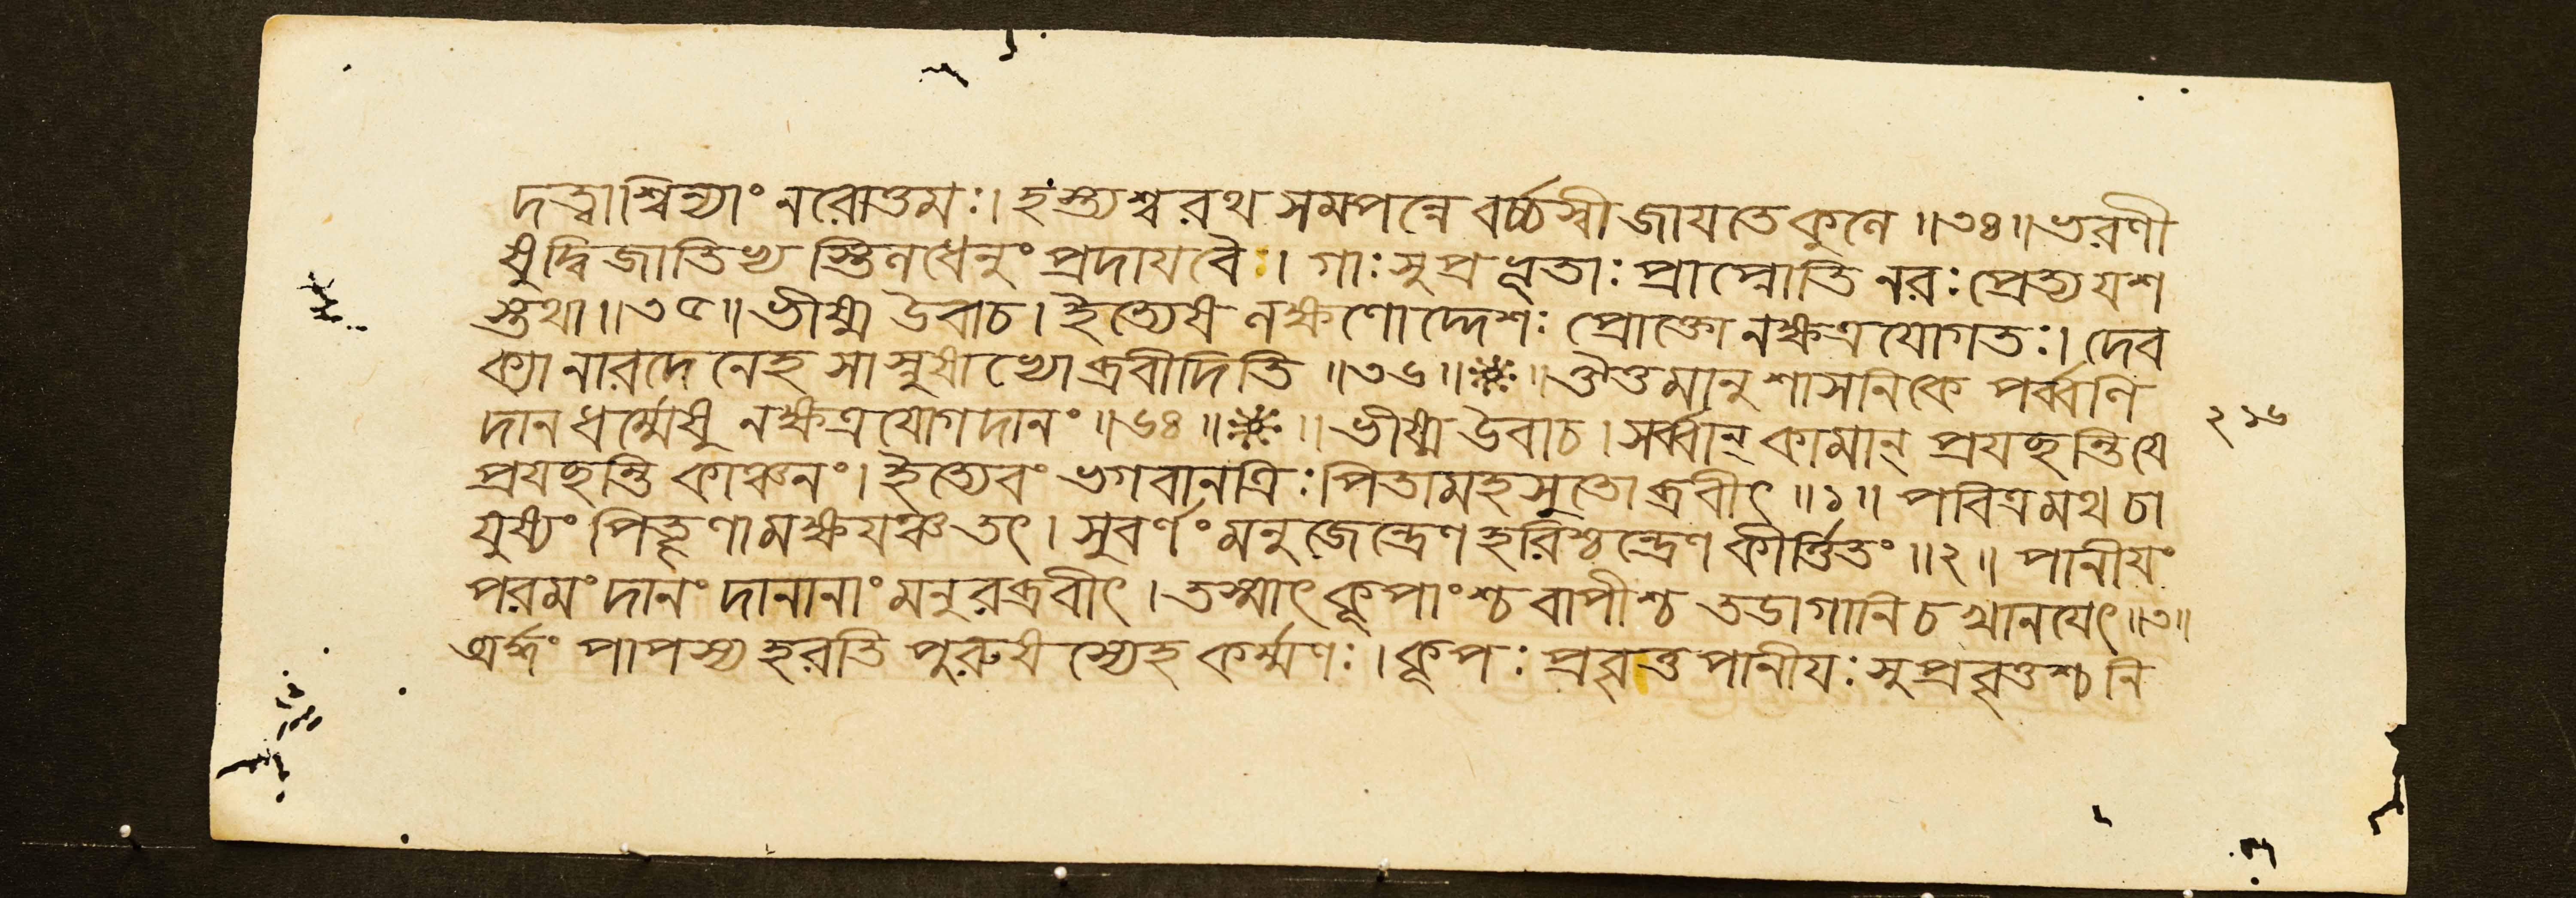 দত্ত্বাশ্বিন্যাং নরোত্তমঃ। হস্ত্যশ্বরথ সমপন্নে বর্চ্চস্বী জাযতে কুলে ॥৩৪॥ ভরণী
ষু দ্বিজাতিভ্য স্তিলধেনুং প্রদায বৈ। গাঃ সুপ্রভূতাঃ প্রাপ্নোতি নরঃ প্রেত্য যশ
স্তথা॥৩৫॥ ভীষ্ম উবাচ। ইত্যেষ লক্ষণোদ্দেশঃ প্রোক্তো নক্ষত্রযোগতঃ। দেব
ক্যা নারদেনেহ সা স্নুষাভ্যো ব্রবীদিতি ॥৩৬॥ ॥ ঔত্তমানুশাসনিকে পর্ব্বণি
দানধর্ম্মেষু নক্ষত্রযোগদানং ॥৬৪॥ ॥ ভীষ্ম উবাচ। সর্ব্বান্ কামান্ প্রযচ্ছন্তি যে
প্রযচ্ছন্তি কাঞ্চনং। ইত্যেবং ভগবানত্রিঃ পিতামহসুতো ব্রবীৎ ॥১॥ পবিত্রমথ চা
যুষ্যং পিতৃণামক্ষযঞ্চ তৎ। সুবর্ণং মনুজেন্দ্রেণ হরিশ্চন্দ্রেণ কীর্ত্তিতং ॥২॥ পানীযং
পরমং দানং দানানাং মনুরব্রবীৎ। তস্মাৎ কূপাংশ্চ বাপীশ্চ তডাগানি চ খানযেৎ ॥৩॥
অর্দ্ধং পাপস্য হরতি পুরুষস্যেহ কর্ম্মণঃ। কূপঃ প্রবৃত্তপানীযঃ সুপ্রবৃত্তশ্চ নি
২১৬